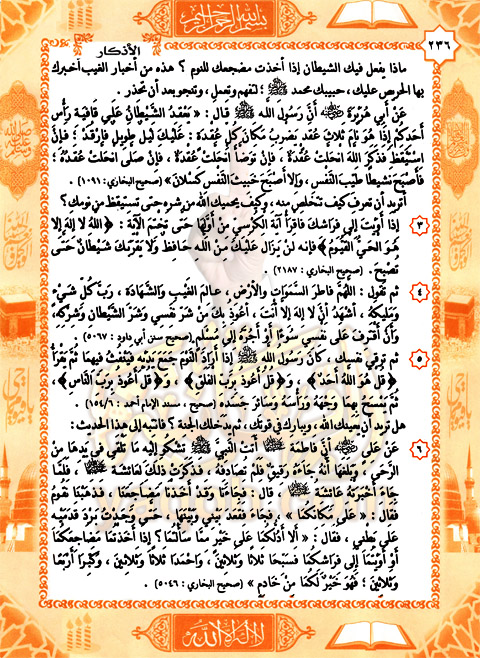 بسم الله الرحمن الرحيم
٢٣٦
الأذكار
ماذا يفعل فيك الشيطان إذا أخذت مضجعك للنوم ؟ هذه من أخبار الغيب أخبرك
بها الحرص عليك ، حبيبك محمد ﷺ ؛ لتفهم وتعمل ، وتنجو بعد أن تحذر .
عَنْ أبي هُرَيْرَةَ رضي الله عنه أنَّ رَسُولَ الله ﷺ قال : « يَعْقِدُ الشَّيْطَانُ عَلَى قَافِيَةِ رَأْسِ
أَحَدِكُمْ إِذَا هُوَ نَامَ ثَلَاثَ عُقَدٍ يَضْرِبُ مَكَانَ كُلِّ عُقْدَةٍ : عَلَيْكَ لَيْلٌ طَوِيلٌ فَارْقُدْ ؛ فَإِنِ
اسْتَيْقَظَ فَذَكَرَ اللهَ انْحَلَّتْ عُقْدَةٌ ، فَإِنْ تَوَضَّأَ انْحَلَّتْ عُقْدَةٌ ، فَإِنْ صَلَّى انْحَلَّتْ عُقَدُهُ ؛
فَأَصْبَحَ نَشِيطًا طَيِّبَ النَّفْسِ ، وَإِلَّا أَصْبَحَ خَبِيثَ النَّفْسِ كَسْلَانَ » (صحيح البخاري : ١٠٩١)
أتريد أن تعرف كيف تتخلص منه ، وكيف يحميك الله من شره حتى تستيقظ من نومك ؟
٣ إذا أَوَيْتَ إلى فِرَاشِكَ فَاقْرَأْ آيَةَ الْكُرْسِيِّ مِنْ أَوَّلِهَا حَتَّى تَخْتِمَ الآيَةَ : ﴿ اللهُ لا إِلَهَ إِلا
هُوَ الْحَيُّ الْقَيُّومُ ﴾ فإنه لَنْ يَزَالَ عَلَيْكَ مِنَ الله حَافِظٌ وَلَا يَقْرَبُكَ شَيْطَانٌ حَتَّى
تُصْبِحَ . (صحيح البخاري : ٢١٨٧)
٤ ثم تقول : اللَّهُمَّ فَاطِرَ السَّمَوَاتِ وَالأَرْضِ ، عَالِمَ الغَيْبِ وَالشَّهَادَةِ ، رَبَّ كُلِّ شَيْءٍ
وَمَلِيكَهُ ، أَشْهَدُ أَنْ لا إِلَهَ إِلا أَنْتَ ، أَعُوذُ بِكَ مِنْ شَرِّ نَفْسِي وَشَرِّ الشَّيْطَانِ وَشِرْكِهِ ،
وَأَنْ أَقْتَرِفَ عَلَى نَفْسِي سُوءًا أَوْ أَجُرَّهُ إِلَى مُسْلِمٍ (صحيح سنن أبي داود : ٥٠٦٧)
٥ ثم ترقي نفسك ، كَانَ رَسُولُ الله ﷺ إِذَا أَرَادَ النَّوْمَ جَمَعَ يَدَيْهِ فَيَنْفُثُ فِيهِمَا ثُمَّ يَقْرَأُ
﴿ قُلْ هُوَ اللهُ أَحَدٌ ﴾ ، وَ﴿ قُلْ أَعُوذُ بِرَبِّ الْفَلَقِ ﴾ ، وَ﴿ قُلْ أَعُوذُ بِرَبِّ النَّاسِ ﴾ ،
ثُمَّ يَمْسَحُ بِهِمَا وَجْهَهُ وَرَأْسَهُ وَسَائِرَ جَسَدِهِ (صحيح ، مسند الإمام أحمد : ١٥٤/٦)
هل تريد أن يعينك الله ، ويبارك في قوتك ، ثم يدخلك الجنة ؟ فانتبه إلى هذا الحديث :
٦ عَنْ عَلي رضي الله عنه أَنَّ فَاطِمَةَ أَتَتِ النَّبِيَّ ﷺ تَشْكُو إِلَيْهِ مَا تَلْقَى فِي يَدِهَا مِنَ
الرَّحَى ، وَبَلَغَهَا أَنَّهُ جَاءَهُ رَقِيقٌ فَلَمْ تُصَادِفْهُ ، فَذَكَرَتْ ذَلِكَ لِعَائِشَةَ ، فَلَمَّا
جَاءَ أَخْبَرَتْهُ عَائِشَةُ ، قَالَ : فَجَاءَنَا وَقَدْ أَخَذْنَا مَضَاجِعَنَا ، فَذَهَبْنَا نَقُومُ
فَقَالَ : « عَلَى مَكَانِكُمَا » ، فَجَاءَ فَقَعَدَ بَيْنِي وَبَيْنَهَا ، حَتَّى وَجَدْتُ بَرْدَ قَدَمَيْهِ
عَلَى بَطْنِي ، فَقَالَ : « أَلَا أَدُلُّكُمَا عَلَى خَيْرٍ مِمَّا سَأَلْتُمَا ؟ إِذَا أَخَذْتُمَا مَضَاجِعَكُمَا
أَوْ أَوَيْتُمَا إِلَى فِرَاشِكُمَا فَسَبِّحَا ثَلَاثًا وَثَلَاثِينَ ، وَاحْمَدَا ثَلَاثًا وَثَلَاثِينَ ، وَكَبِّرَا أَرْبَعًا
وَثَلَاثِينَ ؛ فَهُوَ خَيْرٌ لَكُمَا مِنْ خَادِمٍ » (صحيح البخاري : ٥٠٤٦) .
لا إله إلا الله